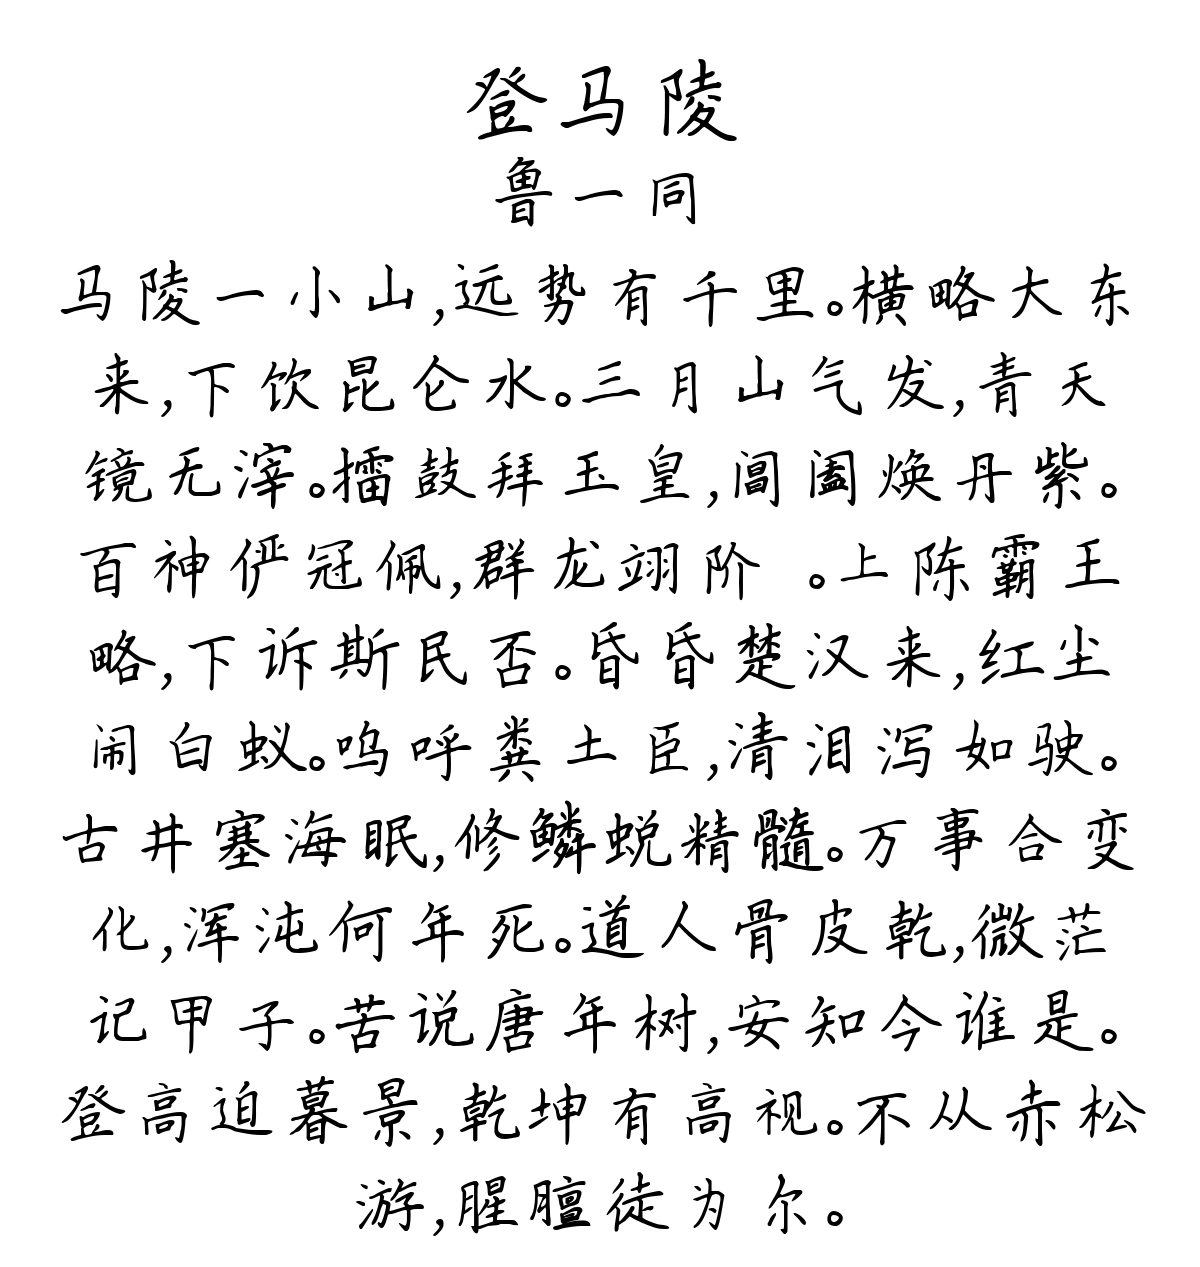 登马陵
鲁一同
马陵一小山,远势有千里。横略大东
来,下饮昆仑水。三月山气发,青天
镜无滓。擂鼓拜玉皇,阊阖焕丹紫。
百神俨冠佩,群龙翊阶 。上陈霸王
略,下诉斯民否。昏昏楚汉来,红尘
闹白蚁。呜呼粪土臣,清泪泻如驶。
古井塞海眠,修鳞蜕精髓。万事合变
化,浑沌何年死。道人骨皮乾,微茫
记甲子。苦说唐年树,安知今谁是。
登高迫暮景,乾坤有高视。不从赤松
游,腥膻徒为尔。